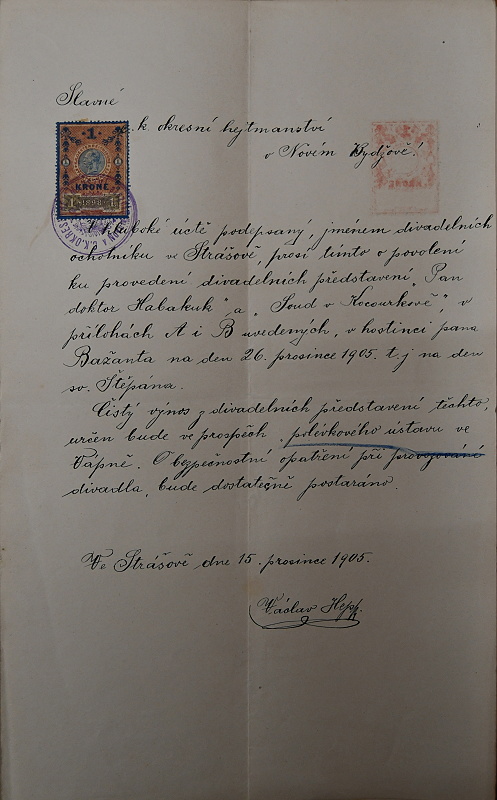 Slavné
c. k. okresní hejtmanství
v Novém Bydžově!
1
KRONE
1 1898 1
V hluboké úctě podepsaný, jménem divadelních
ochotníku ve Strášově, prosí tímto o povolení
ku provedení divadelních představení „Pan
doktor Habakuk" a „Soud v Kocourkově", v
přílohách A i B uvedených, v hostinci pana
Bažanta na den 26. prosince 1905. t. j na den
sv. Štěpána.
Čistý výnos z divadelních představení těchto,
určen bude ve prospěch polévkového ústavu ve
Vápně. O bezpečnostní opatření při provozování
divadla, bude dostatečně postaráno.
Ve Strášově dne 15. prosince 1905.
Václav Hepp.